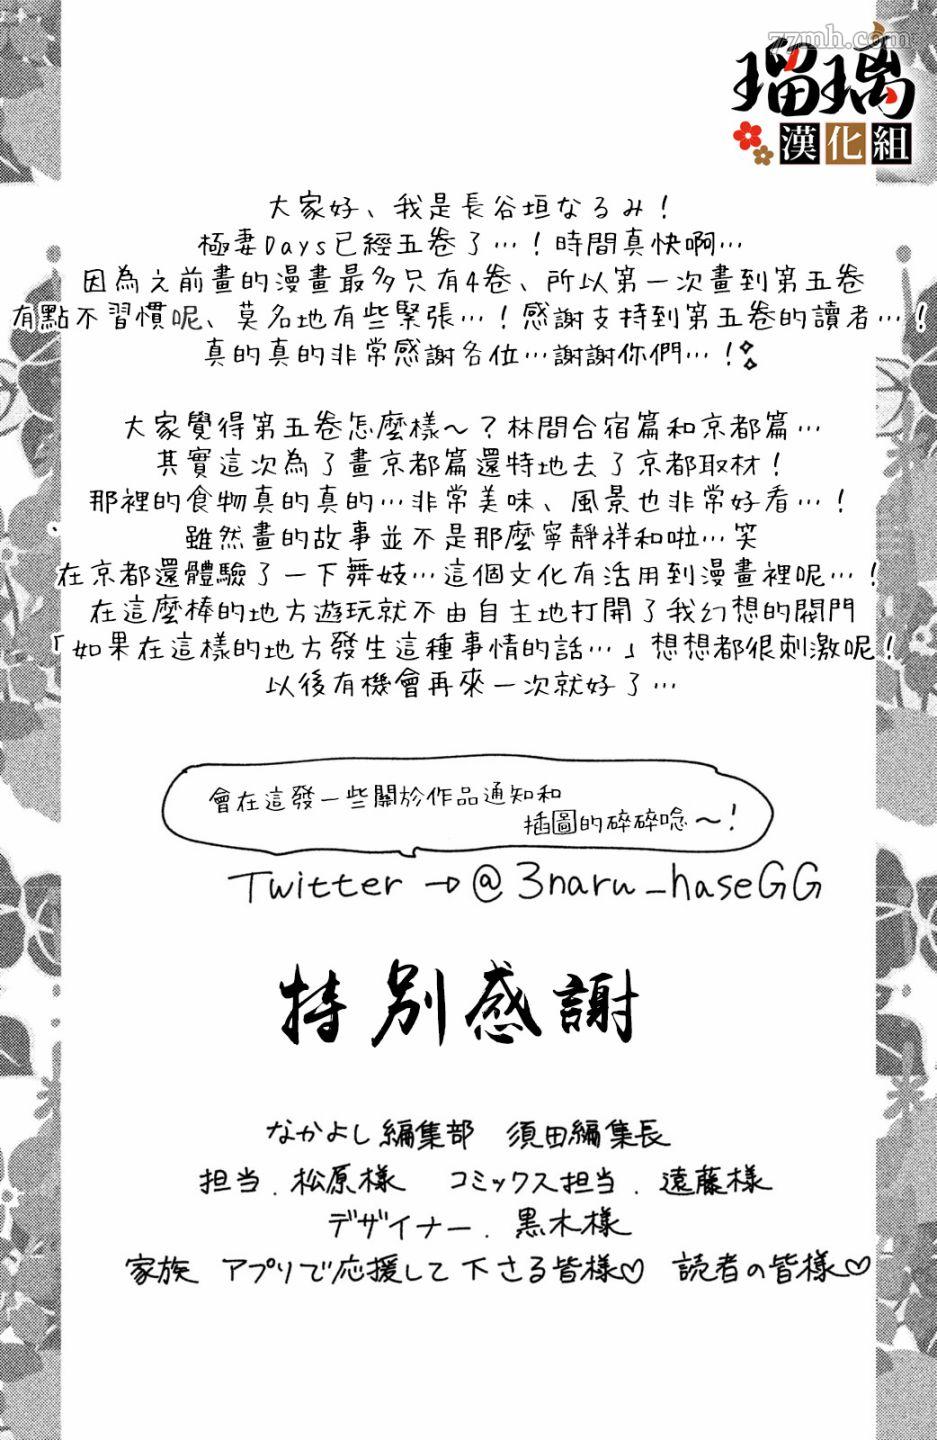 77mh.com
瑠璃
漢化組
大家好、我是長谷垣なるみ！
極妻Days已經五卷了…！時間真快啊…
因為之前畫的漫畫最多只有4卷、所以第一次畫到第五卷
有點不習慣呢、莫名地有些緊張…！感謝支持到第五卷的讀者…！
真的真的非常感謝各位…謝謝你們…！
大家覺得第五卷怎麼樣～？林間合宿篇和京都篇…
其實這次為了畫京都篇還特地去了京都取材！
那裡的食物真的真的…非常美味、風景也非常好看…！
雖然畫的故事並不是那麼寧靜祥和啦…笑
在京都還體驗了一下舞妓…這個文化有活用到漫畫裡呢…！
在這麼棒的地方遊玩就不由自主地打開了我幻想的開門
「如果在這樣的地方發生這種事情的話…」想想都很刺激呢！
以後有機會再來一次就好了…
會在這發一些關於作品通知和
插圖的碎碎唸～！
Twitter→@3naru_haseGG
特別感謝
なかよし編集部　須田編集長
担当．松原様　コミックス担当．遠藤様
デザイナー．黒木様
家族　アプリで応援して下さる皆様♡　読者の皆様♡